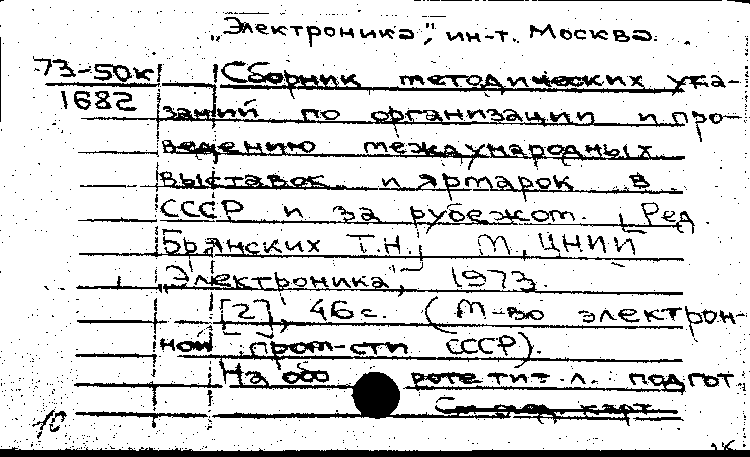 „Электроника", ин-т. Москва.
73-50к Сборник методических ука-
1682 заний по организации и про-
ведению международных
выставок и ярмарок в
СССР и за рубежом. [Ред.
Брянских Т.Н.] М, ЦНИИ
„Электроника", 1973.
[2], 46 с. (М-во электрон-
ной пром-сти СССР).
На обо роте тит. л. подгот.
См. след. карт.
10